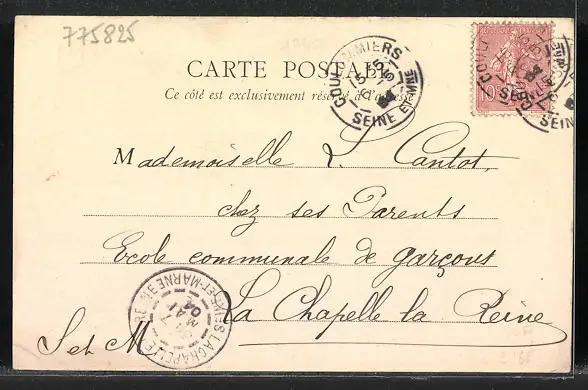 775825
COULOMMIERS
SEINE ET MARNE
10
CARTE POSTALE
Ce côté est exclusivement réservé à l'adresse
Mademoiselle L. Cantot,
chez ses Parents
Ecole communale de garçons
La Chapelle la Reine
S et M
LA CHAPELLE
SEINE-ET-MARNE
04